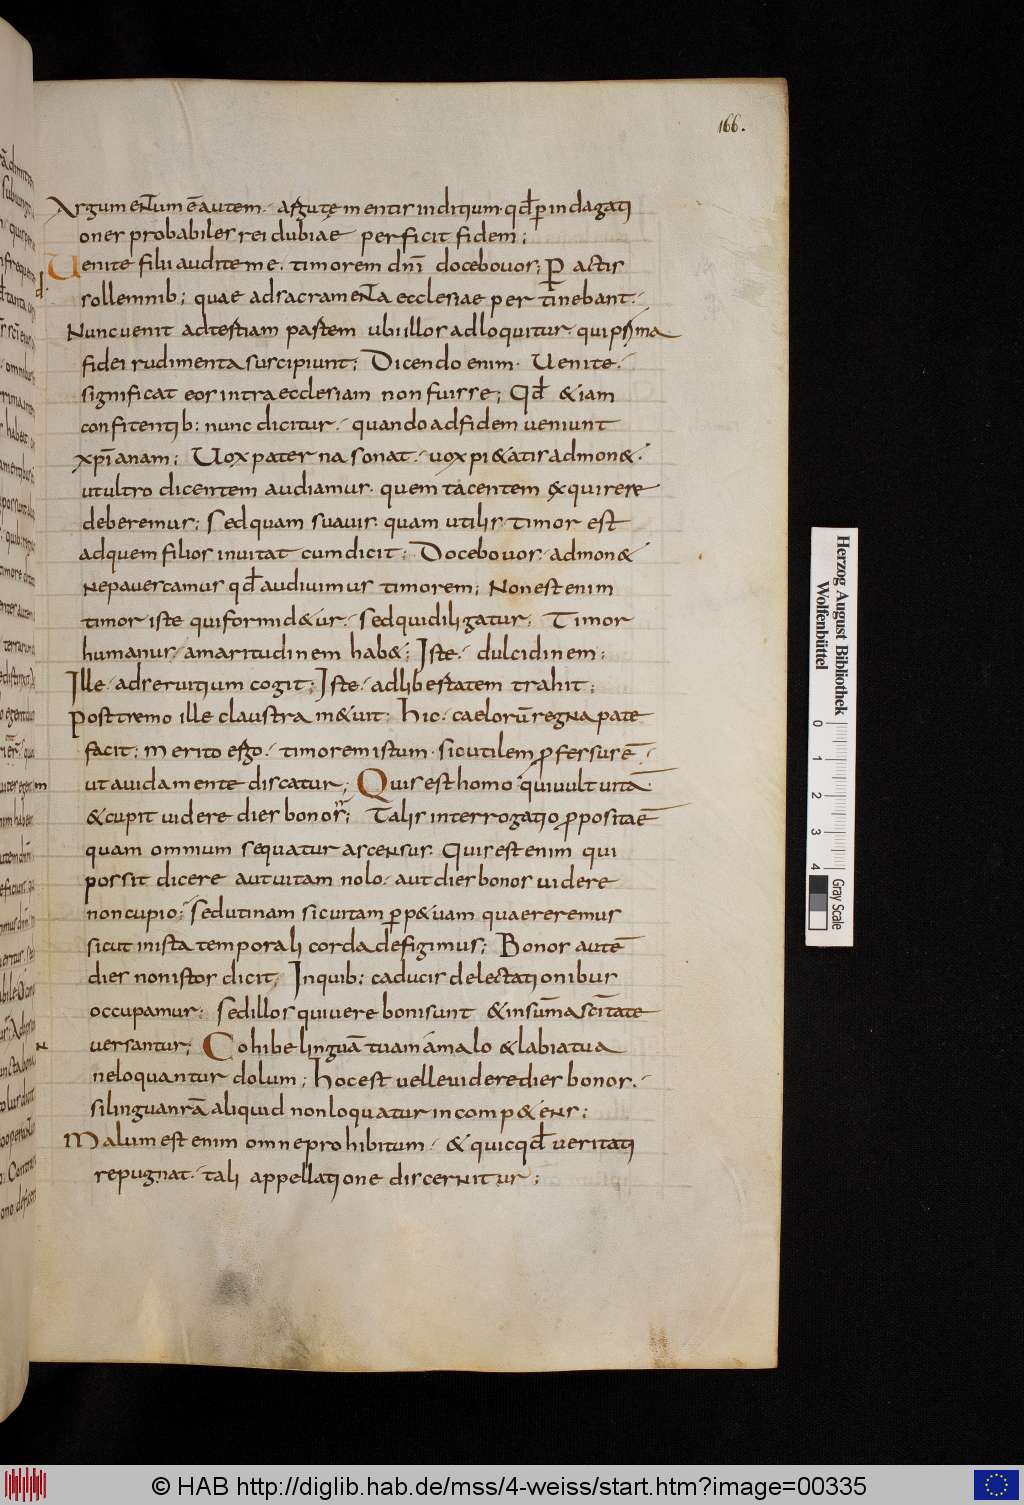 166.
Argumentum ē autem· argute mentis inditium· qđ p̱ indagati
ones probabiles rei dubiae perficit fidem;
Uenite filii audite me. timorem dnī docebo uos; P̱ actis
sollemnib; quae ad sacramenta ecclesiae pertinebant·
Nunc uenit ad tertiam partem ubi illos adloquitur· qui prima
fidei rudimenta suscipiunt; Dicendo enim· Uenite·
significat eos intra ecclesiam non fuisse; Qđ &iam
confitentib; nunc dicitur· quando ad fidem ueniunt
xp̄ianam; Uox paterna sonat· uox pi&atis admon&·
ut ultro dicentem audiamus· quem tacentem exquirere
deberemus; Sed quam suauis quam utilis timor est
ad quem filios inuitat cum dicit; Docebo uos· admon&
ne pauescamus qđ audiuimus timorem; Non est enim
timor iste qui formid&ur· sed qui diligatur; Timor
humanus· amaritudinem hab&; Iste· dulcidinem;
Ille· ad seruitium cogit; Iste· ad libertatem trahit;
Posttremo ille claustra m&uit· hic· caelorū regna pate
facit; Merito ergo· timorem istum· sic utilem ꝓfessus ē·
ut auida mente discatur; Quis est homo qui uult uitā·
& cupit uidere dies bonos; Talis interrogatio ꝓposita ē
quam omnium sequatur ascensus· Quis est enim qui
possit dicere aut uitam nolo· aut dies bonos uidere
non cupio; sed utinam sic uitam p̱p&uam quaereremus
sicut in ista temporali corda defigimus; Bonos autē
dies non istos dicit; In quib; caducis delectationibus
occupamur; sed illos qui uere boni sunt & in summa scītate
uersantur; Cohibe linguā tuam a malo & labia tua
ne loquantur dolum; hoc est uelle uidere dies bonos·
si lingua nrā aliquid non loquatur incomp&ens;
Malum est enim omne prohibitum· & quicqđ ueritati
repugnat· tali appellatione discernitur;
Herzog August Bibliothek
Wolfenbüttel
0 1 2 3 4
Gray Scale
© HAB http://diglib.hab.de/mss/4-weiss/start.htm?image=00335